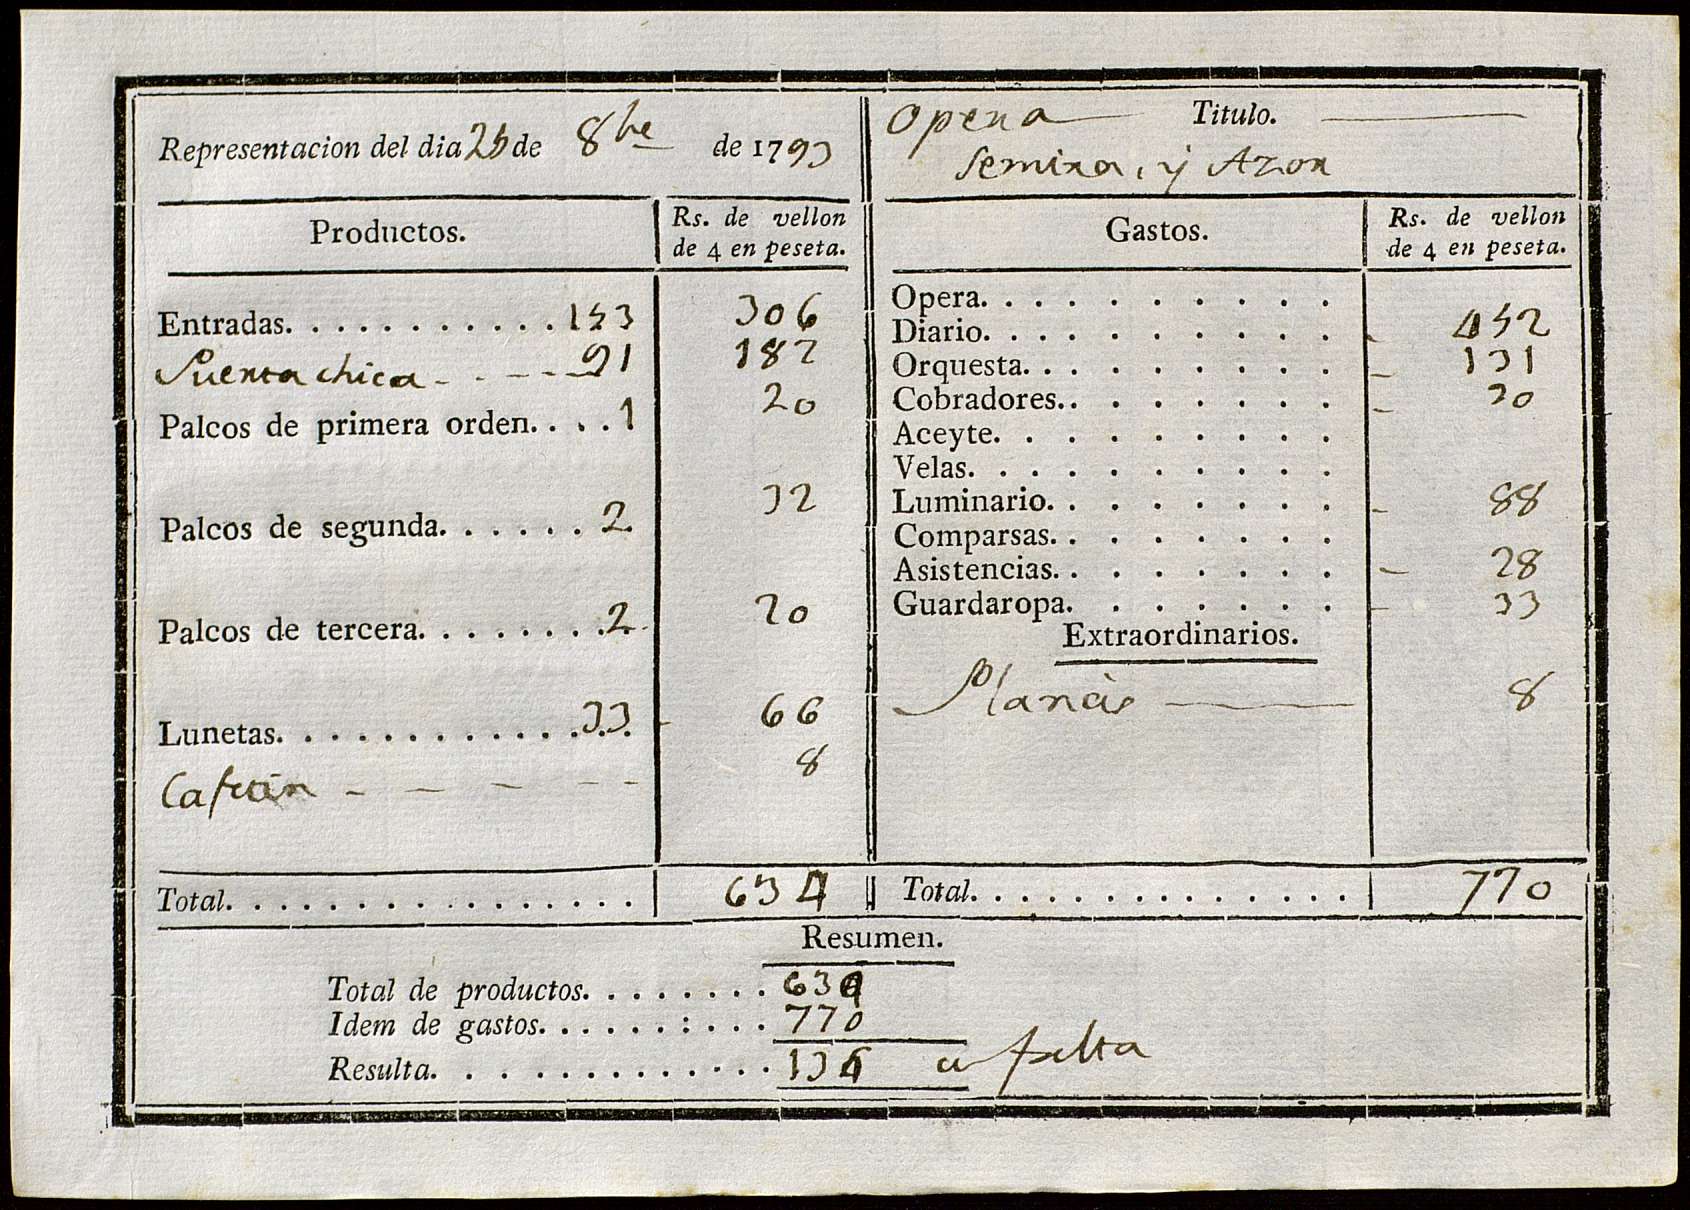 Representacion del dia 25 de 8bre de 1793
Opera Titulo.
Semira, y Azor
Productos.
Rs. de vellon
de 4 en peseta.
Entradas. . . . . . . . . . . 153 306
Puerta chica - - - - - 91 182
Palcos de primera orden. . . . 1 20
Palcos de segunda. . . . . . 2 32
Palcos de tercera. . . . . . . . 2 20
Lunetas. . . . . . . . . . . . . 33 66
Cafetin - - - - - 8
Total. . . . . . . . . . . . . . . . 634
Gastos.
Rs. de vellon
de 4 en peseta.
Opera. . . . . . . . . .
Diario. . . . . . . . . . 452
Orquesta. . . . . . . . . 131
Cobradores. . . . . . . . 30
Aceyte. . . . . . . . .
Velas. . . . . . . . . .
Luminario. . . . . . . . 88
Comparsas. . . . . . . .
Asistencias. . . . . . . . 28
Guardaropa. . . . . . . 33
Extraordinarios.
8
Total. . . . . . . . . . . . . . . 770
Resumen.
Total de productos. . . . . . . . 634
Idem de gastos. . . . . . : . . . 770
Resulta. . . . . . . . . . . . . 136 falta